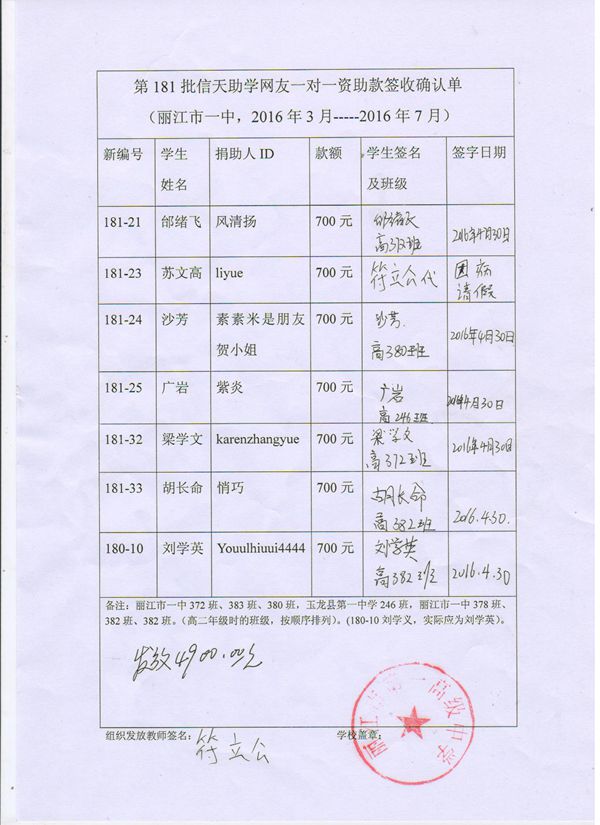 第 181 批信天助学网友一对一资助款签收确认单
（丽江市一中，2016 年 3 月-----2016 年 7 月）
新编号 学生姓名 捐助人 ID 款额 学生签名及班级 签字日期
181-21 邰绪飞 风清扬 700 元 邰绪飞 2016年4月30日
181-23 苏文高 liyue 700 元 符立公代 因病请假
181-24 沙芳 素素米是朋友贺小姐 700 元 沙芳. 高380班 2016年4月30日
181-25 广岩 紫炎 700 元 广岩 高246班. 2016年4月30日
181-32 梁学文 karenzhangyue 700 元 梁学文 高372班 2016年4月30日
181-33 胡长命 悄巧 700 元 胡长命 高382班 2016.4.30.
180-10 刘学英 Youulhiuui4444 700 元 刘学英 高382班 2016.4.30
备注：丽江市一中 372 班、383 班、380 班，玉龙县第一中学 246 班，丽江市一中 378 班、
382 班、382 班。（高二年级时的班级，按顺序排列）。(180-10 刘学义，实际应为刘学英）。
发放4900.00元
组织发放教师签名： 符立公 学校盖章：
丽江市第一高级中学